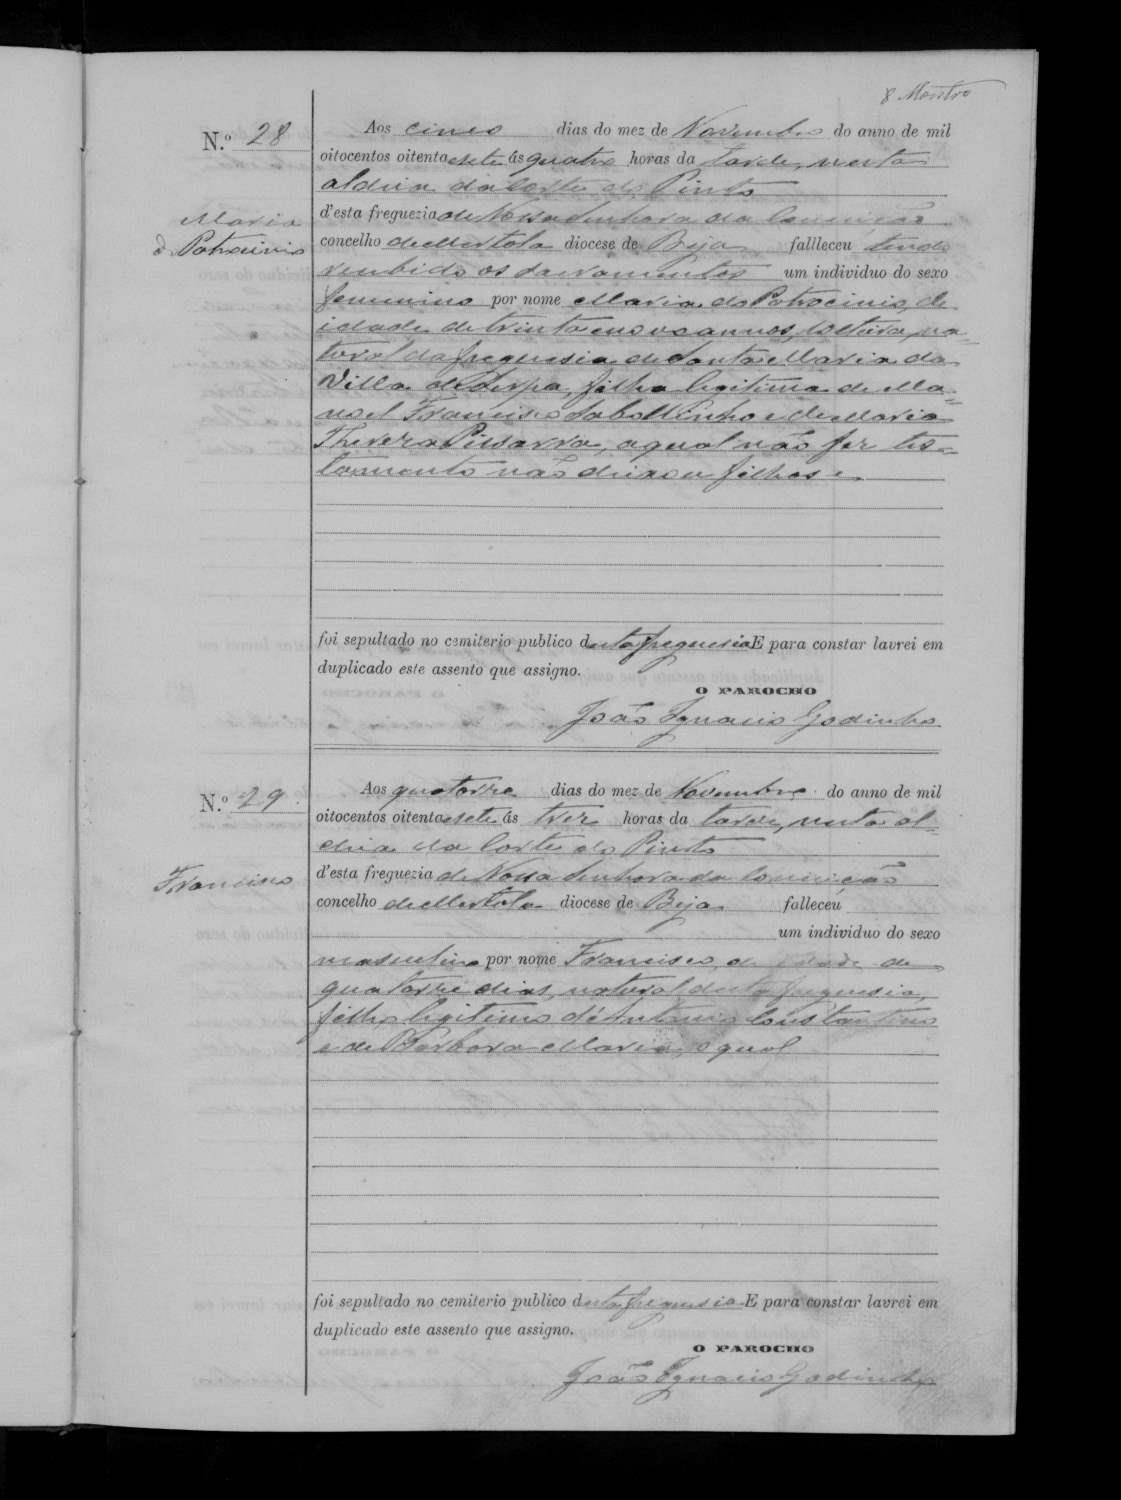 8 Montro
N.º 28
Maria
d. Patrocinio
Aos cinco dias do mez de Novembro do anno de mil
oitocentos oitenta e sete ás quatro horas da tarde, nesta
aldeia da Corte do Pinto
d'esta freguezia de Nossa Senhora da Conceição
concelho de Mertola diocese de Beja fallleceu tendo
recebido os sacramentos um individuo do sexo
feminino por nome Maria do Patrocinio, de
idade de trinta e nove annos, solteira, na=
tural da freguesia de Santa Maria da
Villa de Serpa, filha legitima de Ma=
noel Francisco e de Maria
Thereza Pissarra, a qual não fez tes=
tamento não deixou filhos e
foi sepultado no cemiterio publico desta freguesia E para constar lavrei em
duplicado este assento que assigno.
O PAROCHO
João Ignacio Godinho
N.º 29.
Francisco
Aos quatorze dias do mez de Novembro do anno de mil
oitocentos oitenta e sete ás trez horas da tarde, nesta al=
deia da Corte do Pinto
d'esta freguezia de Nossa Senhora da Conceição
concelho de Mertola diocese de Beja falleceu
um individuo do sexo
masculino por nome Francisco, de idade de
quatorze dias, natural desta freguesia,
filho legitimo d'Antonio Constantino
e de Barbara Maria, o qual
foi sepultado no cemiterio publico desta freguesia E para constar lavrei em
duplicado este assento que assigno.
O PAROCHO
João Ignacio Godinho